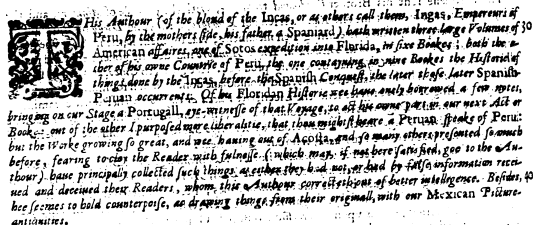 THis Authour (of the bloud of the Incas, or as others call them, Ingas, Emperours of
Peru, by the mothers side, his father a Spaniard) hath written three large Volumes of 30
American affaires, one of Sotos expedition into Florida, in sixe Bookes; both the o-
ther of his owne Countrie of Peru, the one containing in nine Bookes the Historie of
things done by the Incas, before the Spanish Conquest, the later these later Spanish-
Peruan occurrents. Of his Floridan Historie wee have onely borrowed a few notes,
bringing on our Stage a Portugall, eye-witnesse of that Voyage, to act his owne part in our next Act or
Booke: out of the other I purposed more liberalitie, that thou mightst heare a Peruan speake of Peru:
but the Worke growing so great, and wee having out of Acosta, and so many others presented so much
before, fearing to cloy the Reader with fulnesse (which may, if not here satisfied, goe to the Au-
thour) have principally collected such things as either they had not, or had by false information recei-
ued and deceived their Readers, whom this Authour correcteth out of better intelligence. Besides, 40
hee seemes to hold counterpoise, as drawing things from their originall, with our Mexican Picture-
antiquities.